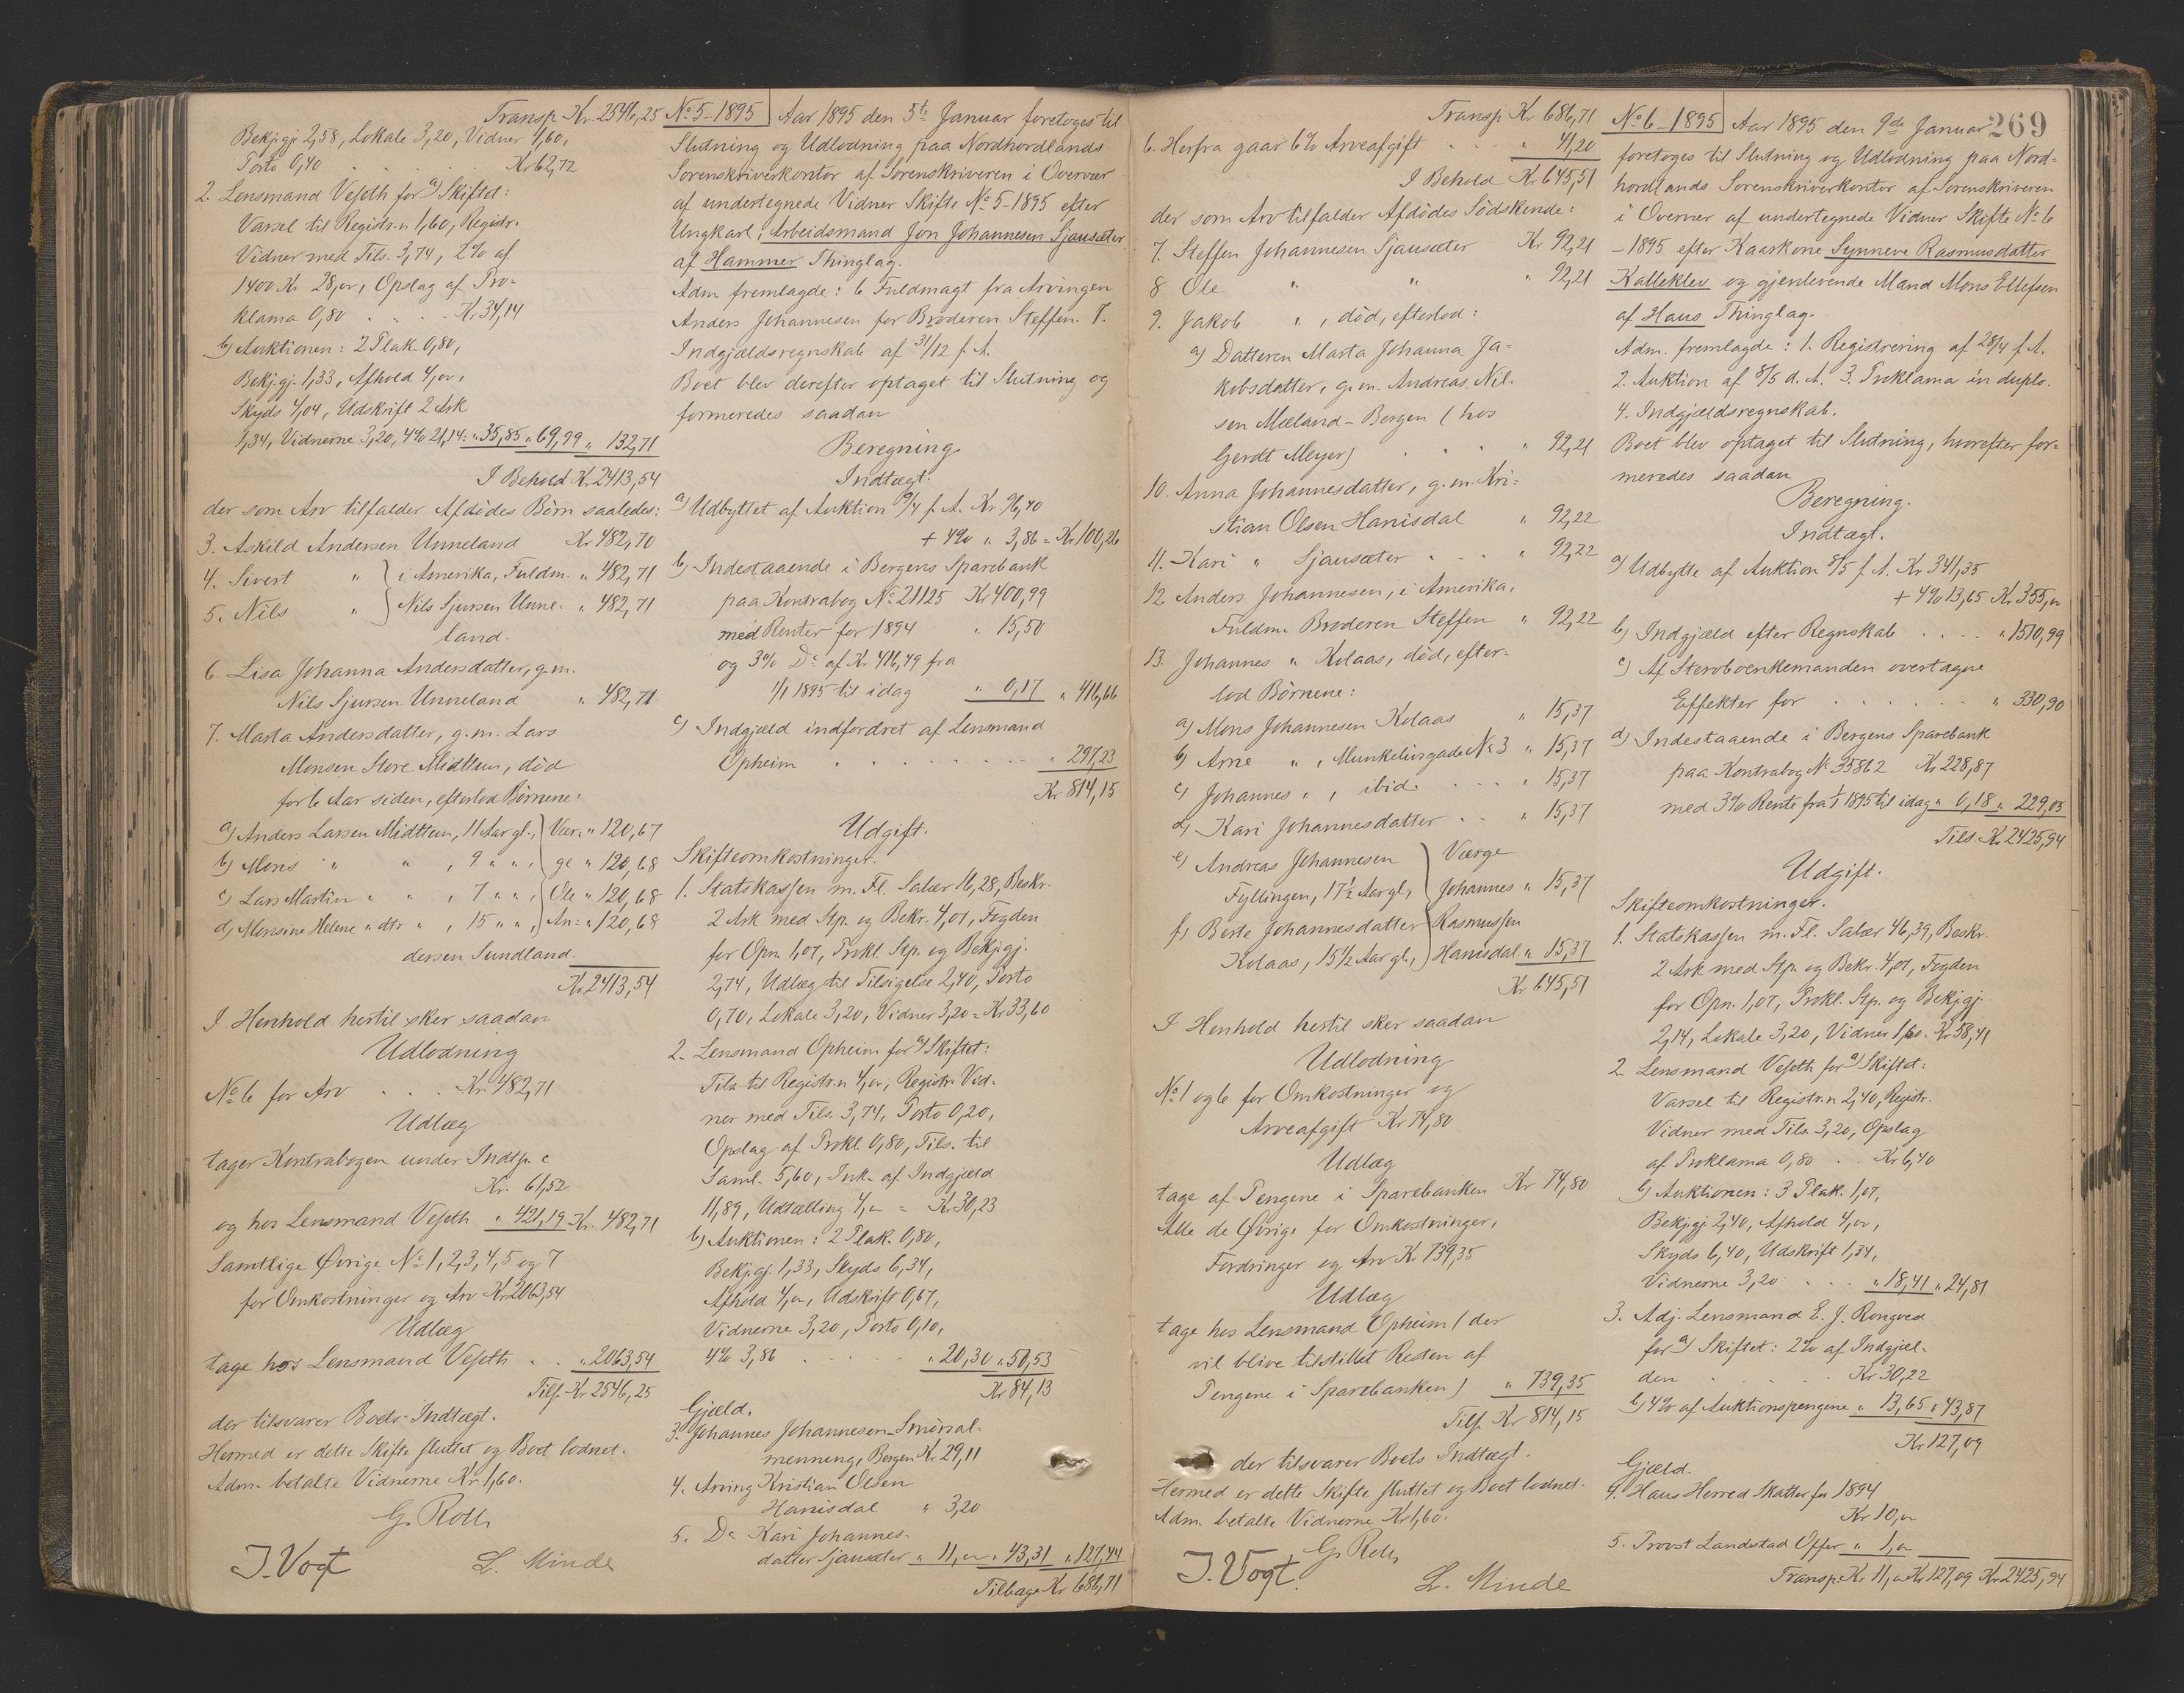 Transp. Kr. 2546,25
Bekj.gj. 2,58, Lokale 3,20, Vidner 1,60,
Porto 0,40 . . . Kr 62,72
2. Lensmand Veseth for a) Skiftet:
Varsel til Registr.n 1,60, Registr.
Vidner med Tils. 3,74, 2% af
1400 Kr 28,oo, Opslag af Pro-
klama 0,80 . . . . Kr. 34,14
b) Auktionen: 2 Plak. 0,80,
Bekj.gj. 1,33, Afhold 4,oo,
Skyds 4,04, Udskrift 2 Ark
1,34, Vidnerne 3,20, 4% 21,14 = " 35,85 " 69,99 " 132,71
I Behold Kr. 2413,54
der som Arv tilfalder Afdødes Børn saaledes:
3. Askild Andersen Unneland Kr 482,70
4. Sivert " } i Amerika, Fuldm. " 482,71
5. Nils " } Nils Sjursen Unne- " 482,71
land.
6. Lisa Johanna Andersdatter, g.m.
Nils Sjursen Unneland " 482,71
7. Marta Andersdatter, g.m. Lars
Monsen Store Midttun, død
for 6 Aar siden, efterlod Børnene:
a) Anders Larsen Midttun, 11 Aar gl., } Vær- " 120,67
b) Mons " " , 9 " " , } ge " 120,68
c) Lars Martin " " , 7 " " , } Ole " 120,68
d) Monsine Helene " dtr " , 15 " " , } An- " 120,68
dersen Sundland.
Kr. 2413,54
I Henhold hertil sker saadan
Udlodning
No 6 for Arv . . . Kr. 482,71
Udlæg
tager Kontrabogen under Indtp. c
Kr. 61,52
og hos Lensmand Veseth " 421,19 Kr. 482,71
Samtlige Øvrige No 1, 2, 3, 4, 5 og 7
for Omkostninger og Arv Kr 2063,54
Udlæg
tage hos Lensmand Veseth . . " 2063,54
Tils. Kr. 2546,25
der tilsvarer Boets Indtægt.
Hermed er dette Skifte sluttet og Boet lodnet.
Adm. betalte Vidnerne Kr. 1,60.
G. Roll
J. Vogt L. Minde
No 5 - 1895 Aar 1895 den 5te Januar foretoges til
Slutning og Udlodning paa Nordhordlands
Sorenskriverkontor af Sorenskriveren i Overvær
af undertegnede Vidner Skifte No 5 - 1895 efter
Ungkarl, Arbeidsmand Jon Johannesen Sjausæter
af Hammer Thinglag.
Adm. fremlagde: 6 Fuldmagt fra Arvingen
Anders Johannesen for Broderen Steffen. 7.
Indgjældsregnskab af 31/12 f.A.
Boet blev derefter optaget til Slutning og
formeredes saadan
Beregning.
Indtægt:
a) Udbyttet af Auktion 9/4 f.A. Kr 96,40
+ 4% " 3,86 = Kr. 100,26
b) Indestaaende i Bergens Sparebank
paa Kontrabog No 21125 Kr 400,99
med Renter for 1894 " 15,50
og 3% Do af Kr. 416,49 fra
1/1 1895 til idag " 0,17 " 416,66
c) Indgjæld indfordret af Lensmand
Opheim . . . . . . . . " 297,23
Kr. 814,15
Udgift.
Skifteomkostninger.
1. Statskassen m. Fl. Salær 16,28, Beskr.
2 Ark med Stp. og Bekr. 4,07, Fogden
for Opn. 1,07, Prokl. Stp. og Bekj.gj.
2,74, Udlæg til Tilsigelse 2,40, Porto
0,70, Lokale 3,20, Vidner 3,20 = Kr 33,60
2. Lensmand Opheim for a) Skiftet:
Tils. til Registr.n 4,oo, Registr. Vid-
ner med Tils. 3,74, Porto 0,20,
Opslag af Prokl. 0,80, Tils. til
Saml. 5,60, Ink. af Indgjæld
11,89, Udtælling 4,oo = Kr. 30,23
b) Auktionen: 2 Plak. 0,80,
Bekj.gj. 1,33, Skyds 6,34,
Afhold 4,oo, Udskrift 0,67,
Vidnerne 3,20, Porto 0,10,
4% 3,86 . . . . . " 20,30 " 50,53
Kr 84,13
Gjæld.
3. Johannes Johannesen Smørsal-
menning, Bergen Kr. 29,11
4. Arving Kristian Olsen
Hanisdal " 3,20
5. Do Kari Johannes-
datter Sjausæter " 11,oo " 43,31 " 127,44
Tilbage Kr. 686,71
Transp. Kr. 686,71
6. Herfra gaar 6% Arveafgift . . . " 41,20
I Behold Kr. 645,51
der som Arv tilfalder Afdødes Sødskende:
7. Steffen Johannesen Sjausæter Kr. 92,21
8 Ole " " " 92,21
9. Jakob " , død, efterlod:
a) Datteren Marta Johanna Ja-
kobsdatter, g.m. Andreas Nil-
sen Mæland - Bergen (hos
Gerdt Meyer) . . . . " 92,21
10. Anna Johannesdatter, g.m. Kri-
stian Olsen Hanisdal " 92,22
11. Kari " Sjausæter . . . " 92,22
12. Anders Johannesen, i Amerika,
Fuldm. Broderen Steffen " 92,22
13. Johannes " Kolaas, død, efter-
lod Børnene:
a) Mons Johannesen Kolaas " 15,37
b) Arne " , Munkelivsgade No 3 " 15,37
c) Johannes " , ibid. . . . " 15,37
d) Kari Johannesdatter . . " 15,37
e) Andreas Johannesen } Værge
Fyllingen, 17½ Aar gl., } Johannes " 15,37
f) Berte Johannesdatter } Rasmussen
Kolaas, 15½ Aar gl., } Hanisdal " 15,37
Kr. 645,51
I Henhold hertil sker saadan
Udlodning
No 1 og 6 for Omkostninger og
Arveafgift Kr 74,80
Udlæg
tage af Pengene i Sparebanken Kr 74,80
Alle de Øvrige for Omkostninger,
Fordringer og Arv Kr. 739,35
Udlæg
tage hos Lensmand Opheim (der
vil blive tilstillet Resten af
Pengene i Sparebanken) " 739,35
Tils. Kr. 814,15
der tilsvarer Boets Indtægt.
Hermed er dette Skifte sluttet og Boet lodnet.
Adm. betalte Vidnerne Kr 1,60.
G. Roll
J. Vogt. L. Minde
No 6 - 1895 Aar 1895 den 9de Januar 269
foretoges til Slutning og Udlodning paa Nord-
hordlands Sorenskriverkontor af Sorenskriveren
i Overvær af undertegnede Vidner Skifte No 6
- 1895 efter Kaarkone Synneve Rasmusdatter
Kalleklev og gjenlevende Mand Mons Ellefsen
af Haus Thinglag.
Adm. fremlagde: 1. Registrering af 28/4 f.A.
2. Auktion af 8/5 d.A. 3. Proklama in duplo.
4. Indgjældsregnskab.
Boet blev optaget til Slutning, hvorefter for-
meredes saadan
Beregning.
Indtægt.
a) Udbytte af Auktion 8/5 f.A. Kr 341,35
+ 4% 13,65 Kr. 355,oo
b) Indgjæld efter Regnskab . . . . " 1510,99
c) Af Stervboenkemanden overtagne
Effekter for . . . . . . " 330,90
d) Indestaaende i Bergens Sparebank
paa Kontrabog No 35862 Kr 228,87
med 3% Rente fra 1/1 1895 til idag " 0,18 " 229,05
Tils. Kr. 2425,94
Udgift.
Skifteomkostninger.
1. Statskassen m. Fl. Salær 46,39, Beskr.
2 Ark med Stp. og Bekr. 4,07, Fogden
for Opn. 1,07, Prokl. Stp. og Bekj.gj.
2,14, Lokale 3,20, Vidner 1,60 . Kr 58,41
2. Lensmand Veseth for a) Skiftet:
Varsel til Registr.n 2,40, Registr.
Vidner med Tils. 3,20, Opslag
af Proklama 0,80 . . Kr 6,40
b) Auktionen: 3 Plak. 1,07,
Bekj.gj. 2,40, Afhold 4,oo,
Skyds 6,40, Udskrift 1,34,
Vidnerne 3,20 . . . " 18,41 " 24,81
3. Adj. Lensmand E. J. Rongved
for a) Skiftet: 2% af Indgjæl-
den . . . . . Kr 30,22
b) 4% af Auktionspengene " 13,65 " 43,87
Kr 127,09
Gjæld.
4. Haus Herred Skatter for 1894
Kr 10,oo
5. Provst Landstad Offer " 1,oo
Transp. Kr. 11,oo Kr 127,09 Kr. 2425,94